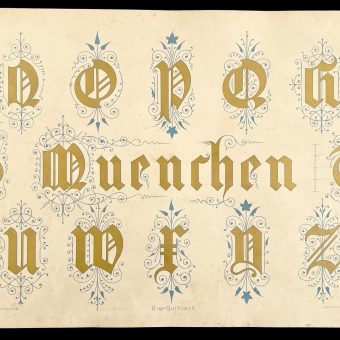 N O P Q R
Muenchen
U W X Y Z
Zier Gothisch